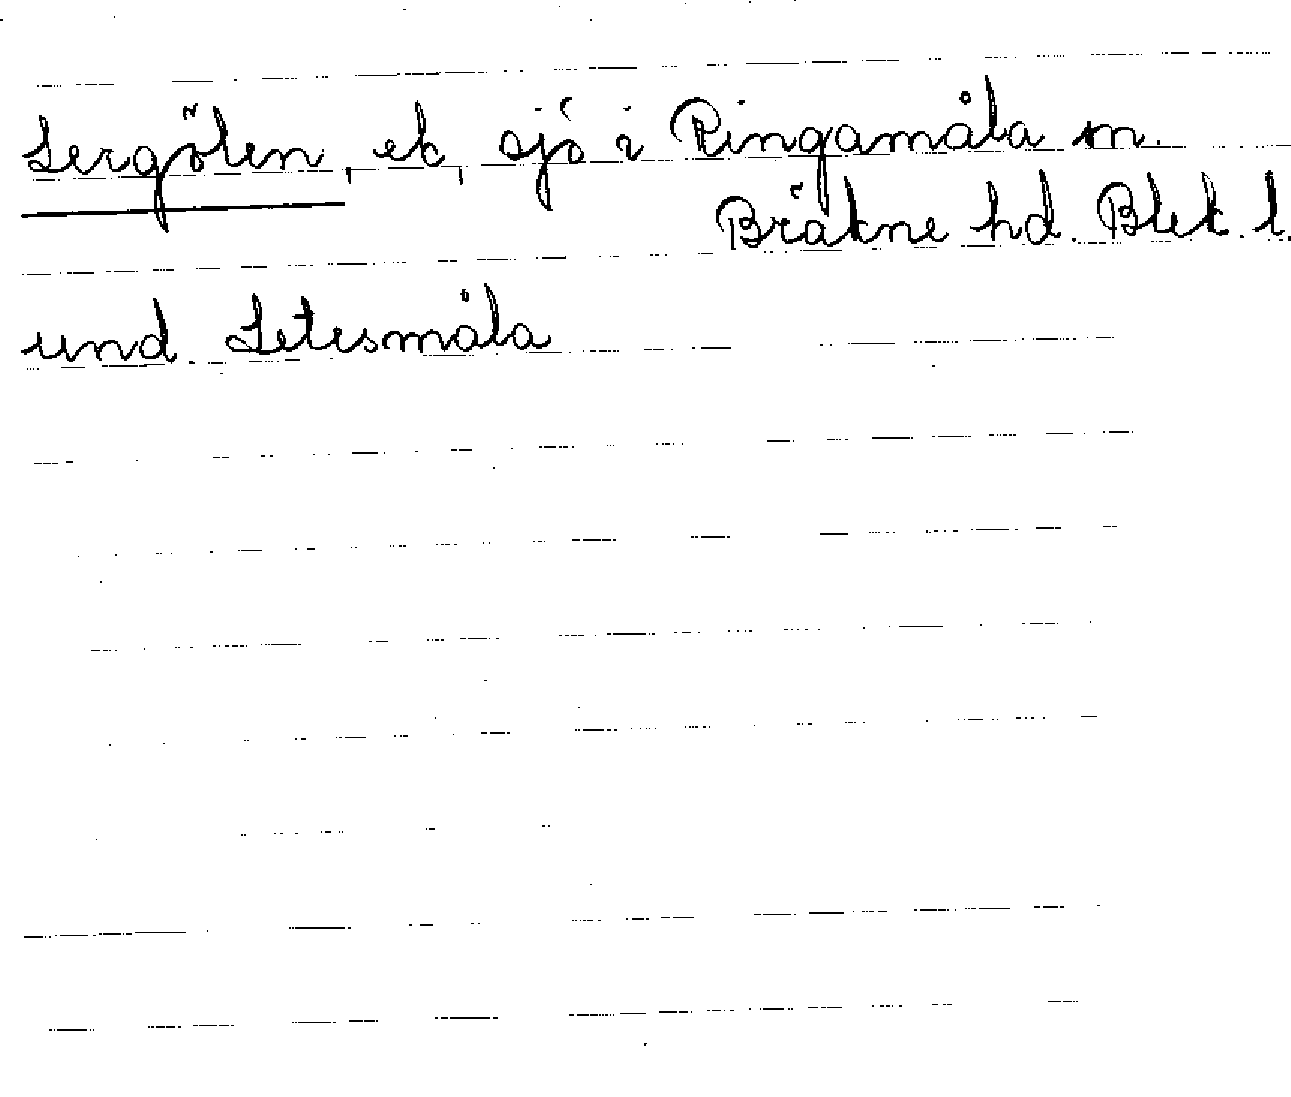 Lergölen, ek, sjö i Ringamåla sn.
Bräkne hd. Blek. l.
und. Letesmåla